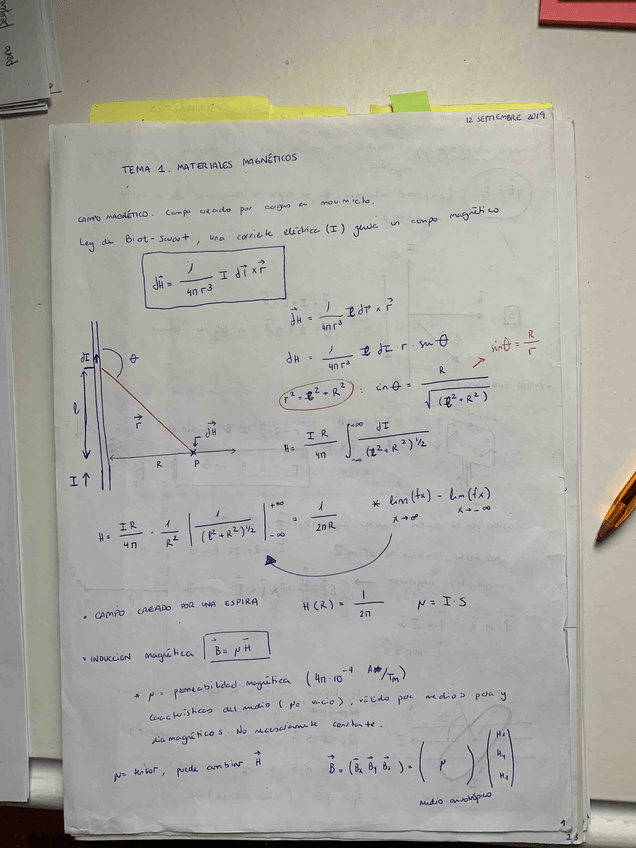 12 SEPTIEMBRE 2019
TEMA 1. MATERIALES MAGNÉTICOS
CAMPO MAGNÉTICO. Campo creado por cargas en movimiento.
Ley de Biot-Savart, una corriente eléctrica (I) genera un campo magnético
dH⃗ = 1/4πr³ I dl⃗ x r⃗
dH⃗ = 1/4πr³ I dl⃗ x r⃗
dH = 1/4πr³ I dl · r · sin θ
sin θ = R/r
r² = l² + R² : sin θ = R/√(l² + R²)
H = IR/4π ∫_{-∞}^{+∞} dl/(l² + R²)^{1/2}
dl θ
l r⃗ dH⃗
R P
I ↑
H = IR/4π · 1/R² | 1/(l² + R²)^{1/2} |_{-∞}^{+∞} = 1/2πR
* lim (fx) - lim (fx)
x→∞ x→-∞
• CAMPO CREADO POR UNA ESPIRA H(R) = 1/2π μ = I·S
• INDUCCION magnética B⃗ = μH⃗
* μ = permeabilidad magnética (4π·10⁻⁷ /Tm)
Características del medio (μ₀ vacío), válido para medios para y
diamagnéticos. No necesariamente constante.
μ = tensor, puede cambiar H⃗
B⃗ = (B⃗x B⃗y B⃗z) = ( μ ) (Hx Hy Hz)
medio anisótropico
1
23